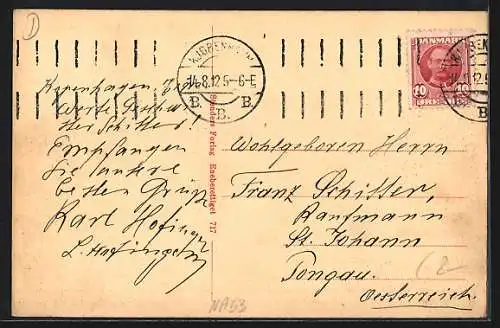 D
KJØBENHAVN
14.8.12 5-6 E
B. B. B.
DANMARK
10 10
ØRE
Kopenhagen,
Werte
Herr Schitter!
Empfangen
Sie unsere
besten Grüsse
Karl Hofinger
L. Hofinger
Forlag Eneberettiget 717
Wohlgeboren Herrn
Franz Schitter,
Kaufmann
St. Johann
Pongau.
Oesterreich.
NA53